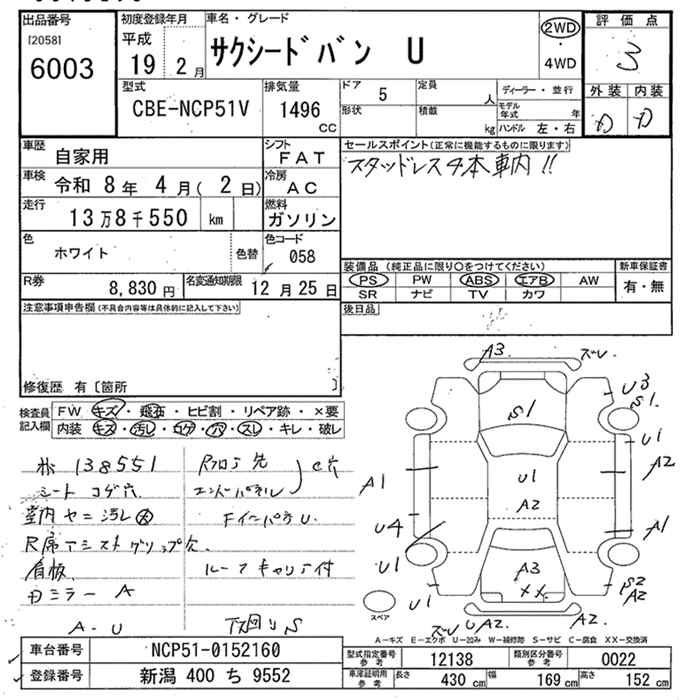 出品番号
[2058]
6003
初度登録年月
平成
19 2 月
車名・グレード
サクシードバン U
2WD
・
4WD
評価点
3
外装 内装
D D
型式
CBE-NCP51V
排気量
1496
CC
ドア 5
形状
定員
人
積載
kg
ディーラー・並行
モデル年式 年
ハンドル 左・右
車歴
自家用
シフト
FAT
車検
令和 8 年 4 月( 2 日)
冷房
AC
走行
13 万 8 千 550 km
燃料
ガソリン
色
ホワイト
色替
色コード
058
R券
8,830 円
名変通知期限
12 月 25 日
セールスポイント(正常に機能するものに限ります)
スタッドレス4本車内!!
装備品 (純正品に限り○をつけてください)
PS PW ABS エアB AW
SR ナビ TV カワ
新車保証書
有・無
後日品
注意事項申告欄(不具合内容等は具体的に記入して下さい)
修復歴 有〔箇所 〕
検査員記入欄
FW キズ・飛石・ヒビ割・リペア跡・×要
内装 キズ・汚レ・コゲ・穴・スレ・キレ・破レ
138551
シート コゲ穴
室内ヤニ汚レ大
R席アシストグリップ欠
看板
ミラー A
A-U
Rフロア先
エンドパネル
C穴
Fインパネ U
ルーフキャリア付
下廻りS
A3
ズレ
U3
S1
S1
U1
A2
A1
U1
A2
U4
A1
U1
A3
××
U1
S2
A2
ズレ
U A2
スペア
A-キズ E-エクボ U-凹み W-補修跡 S-サビ C-腐食 XX-交換済
車台番号 NCP51-0152160
登録番号 新潟 400 ち 9552
型式指定番号 参考 12138
類別区分番号 参考 0022
車庫証明用 参考 長さ 430 cm 幅 169 cm 高さ 152 cm